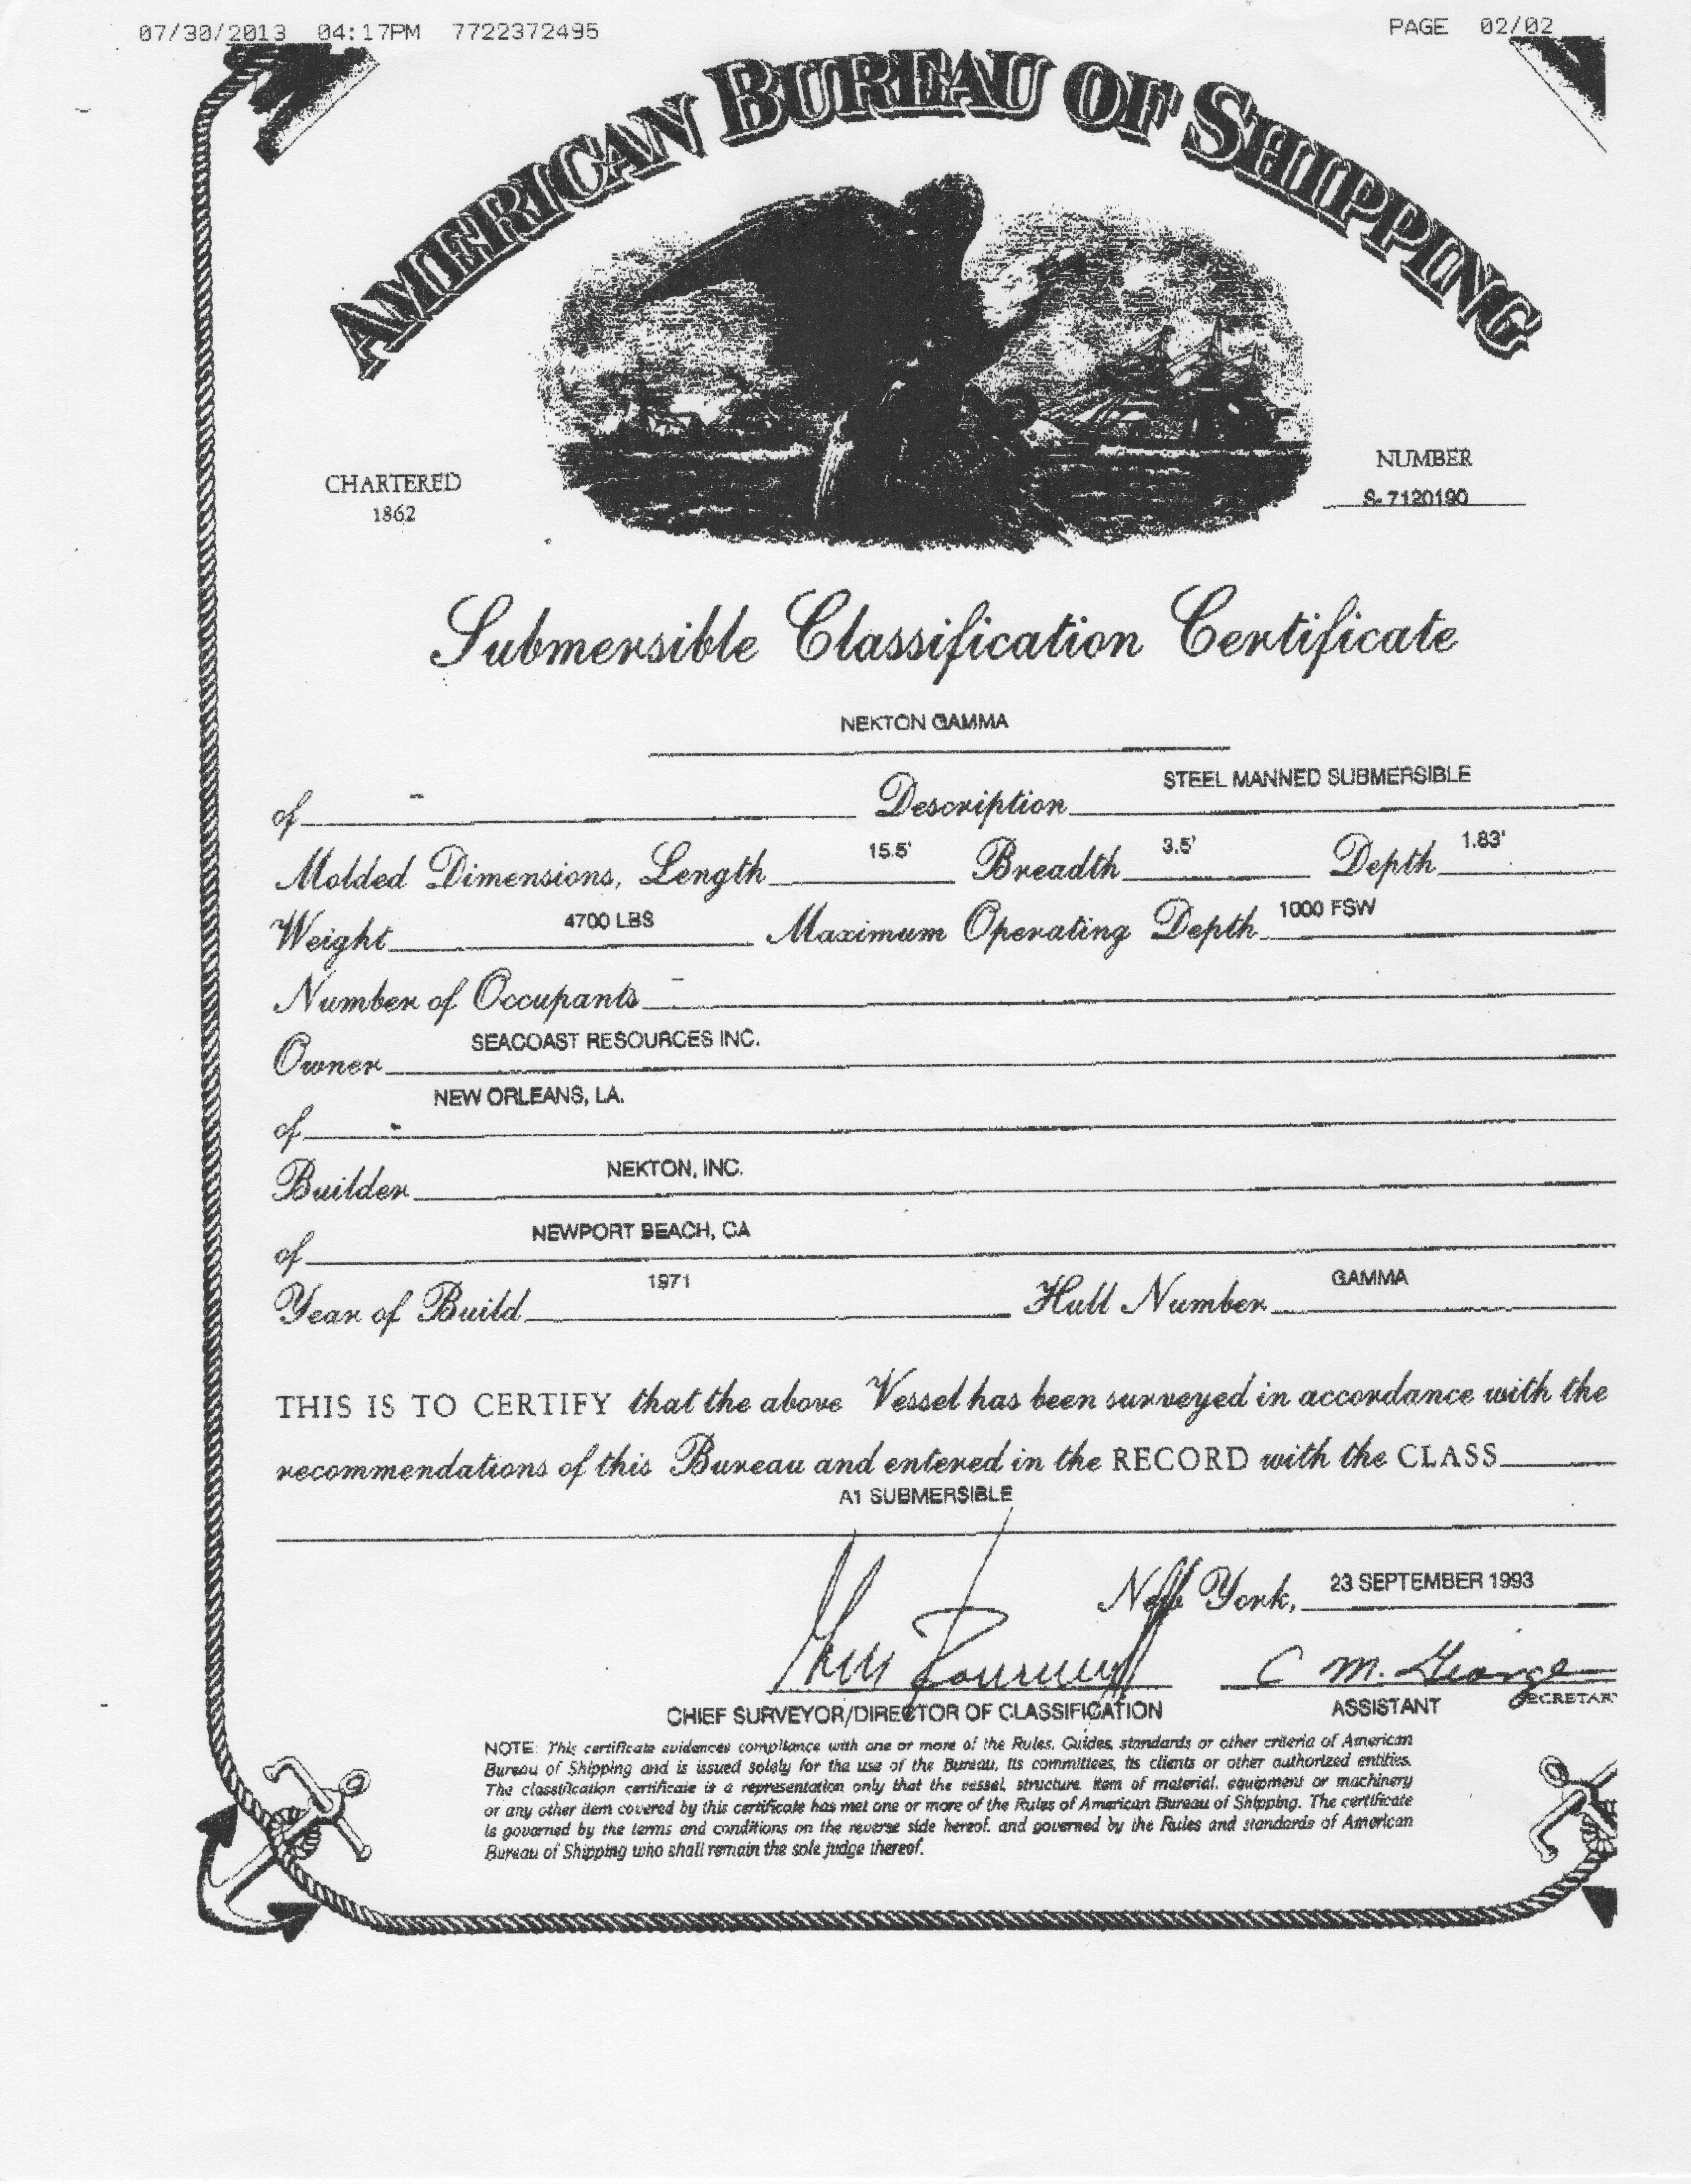 07/30/2013 04:17PM 7722372495 PAGE 02/02
AMERICAN BUREAU OF SHIPPING
CHARTERED
1862
NUMBER
S-7120190
Submersible Classification Certificate
NEKTON GAMMA
of - Description STEEL MANNED SUBMERSIBLE
Molded Dimensions, Length 15.5' Breadth 3.5' Depth 1.83'
Weight 4700 LBS Maximum Operating Depth 1000 FSW
Number of Occupants -
Owner SEACOAST RESOURCES INC.
of NEW ORLEANS, LA.
Builder NEKTON, INC.
of NEWPORT BEACH, CA
Year of Build 1971 Hull Number GAMMA
THIS IS TO CERTIFY that the above Vessel has been surveyed in accordance with the
recommendations of this Bureau and entered in the RECORD with the CLASS
A1 SUBMERSIBLE
New York, 23 SEPTEMBER 1993
C M. George
CHIEF SURVEYOR/DIRECTOR OF CLASSIFICATION ASSISTANT SECRETAR
NOTE: This certificate evidences compliance with one or more of the Rules, Guides, standards or other criteria of American
Bureau of Shipping and is issued solely for the use of the Bureau, its committees, its clients or other authorized entities.
The classification certificate is a representation only that the vessel, structure, item of material, equipment or machinery
or any other item covered by this certificate has met one or more of the Rules of American Bureau of Shipping. The certificate
is governed by the terms and conditions on the reverse side hereof, and governed by the Rules and standards of American
Bureau of Shipping who shall remain the sole judge thereof.